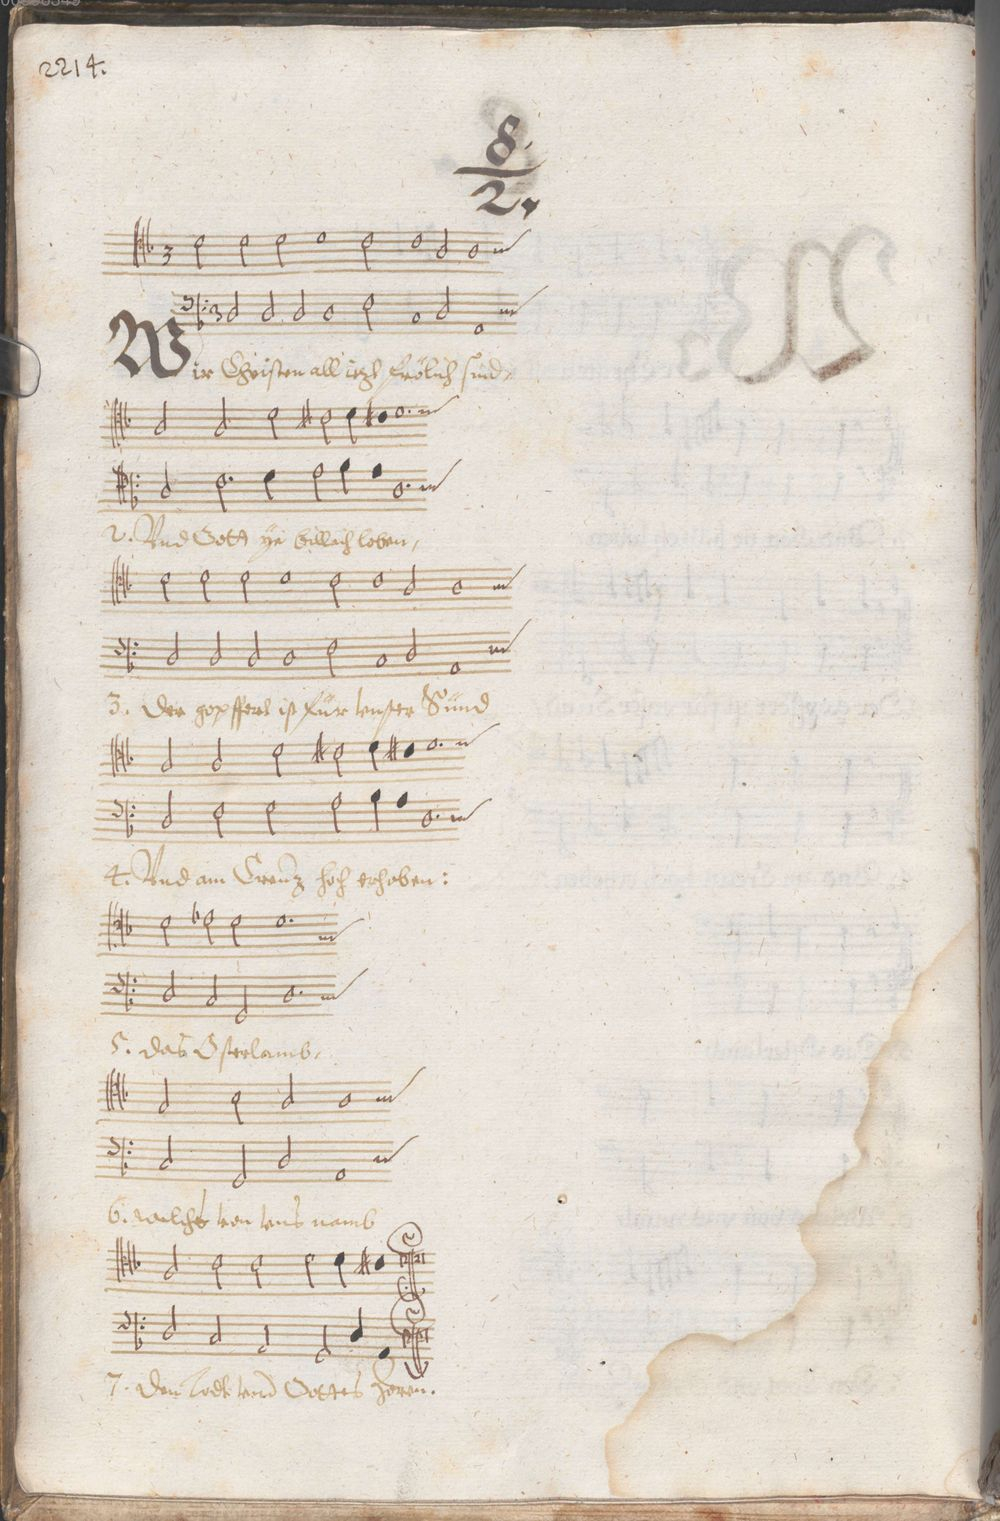 2214.
8.
2.
3
3
Wir Christen all ietzt frölich sind,
2. Vnd Gott ye billich loben,
3. der gopffert ist für vnser Sünd
4. Vnd am Creutz hoch erhoben:
5. das Osterlamb,
6. welchs von vns namb
7. den Todt vnd Gottes Zoren.